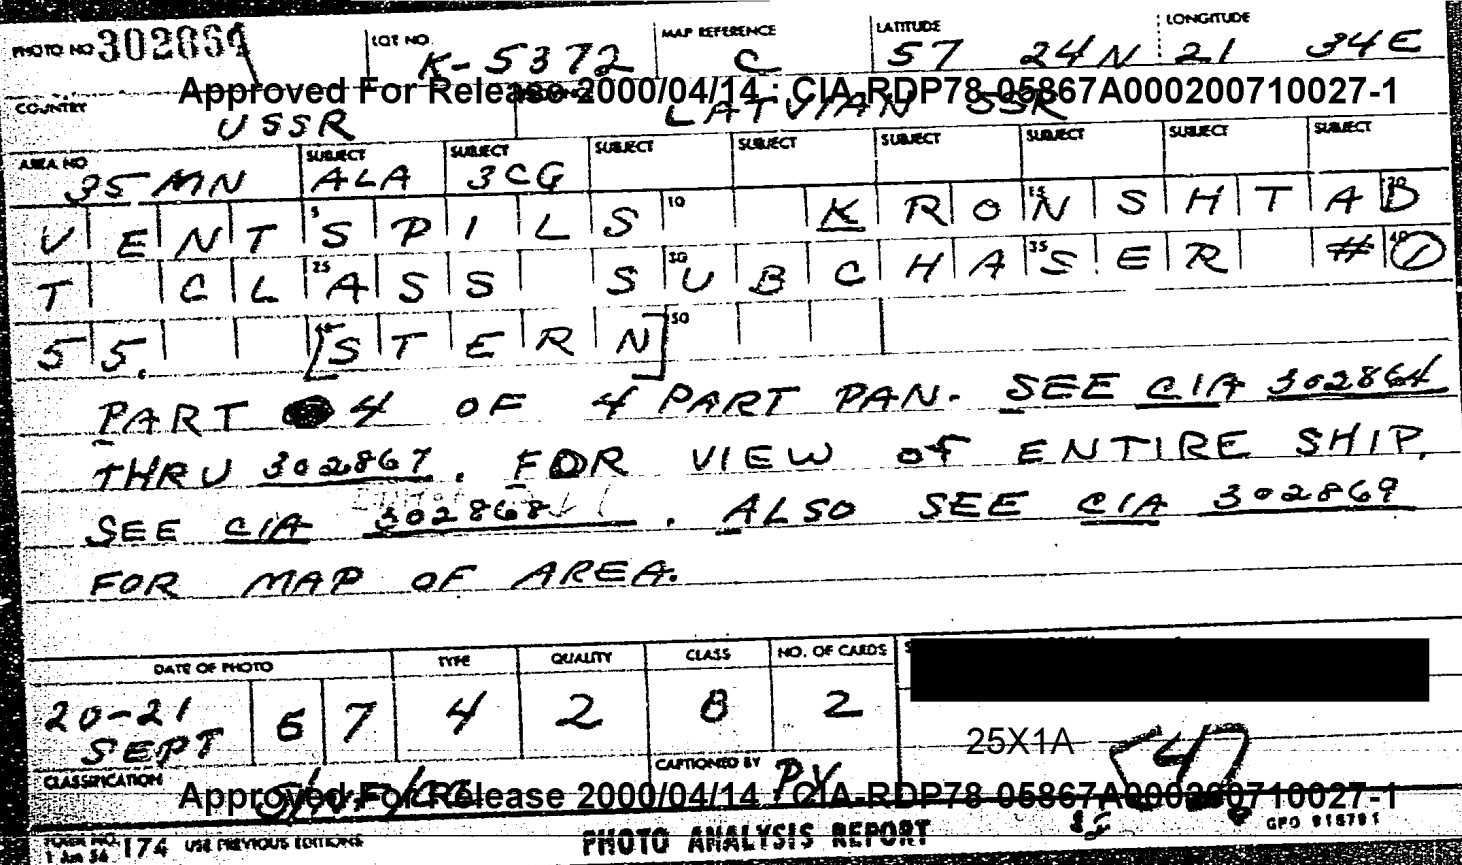 PHOTO NO 302864 LOT NO. K-5372 MAP REFERENCE C LATITUDE 57 24N LONGITUDE 21 34E
Approved For Release 2000/04/14 : CIA-RDP78-05867A000200710027-1
COUNTRY USSR LATVIAN SSR
AREA NO 35MN SUBJECT ALA SUBJECT 3CG SUBJECT SUBJECT SUBJECT SUBJECT SUBJECT SUBJECT
VENTSPILS KRONSHTAD
T CLASS SUBCHASER #1
55. [STERN]
PART 4 OF 4 PART PAN. SEE CIA 302864
THRU 302867. FOR VIEW OF ENTIRE SHIP,
SEE CIA 302868. ALSO SEE CIA 302869
FOR MAP OF AREA.
DATE OF PHOTO TYPE QUALITY CLASS NO. OF CARDS
20-21 SEPT 5 7 4 2 8 2
25X1A
CLASSIFICATION CAPTIONED BY PY
Approved For Release 2000/04/14 : CIA-RDP78-05867A000200710027-1
FORM NO. 1 Jun 56 174 USE PREVIOUS EDITIONS PHOTO ANALYSIS REPORT GPO 918791